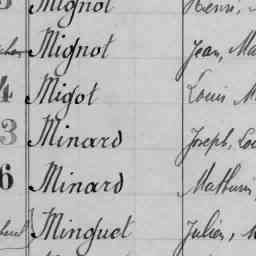 Mignot Henri,
Mignot Jean, Ma
4 Migot Louis M
3 Minard Joseph, Lou
6 Minard Mathurin,
Minguet Julien,